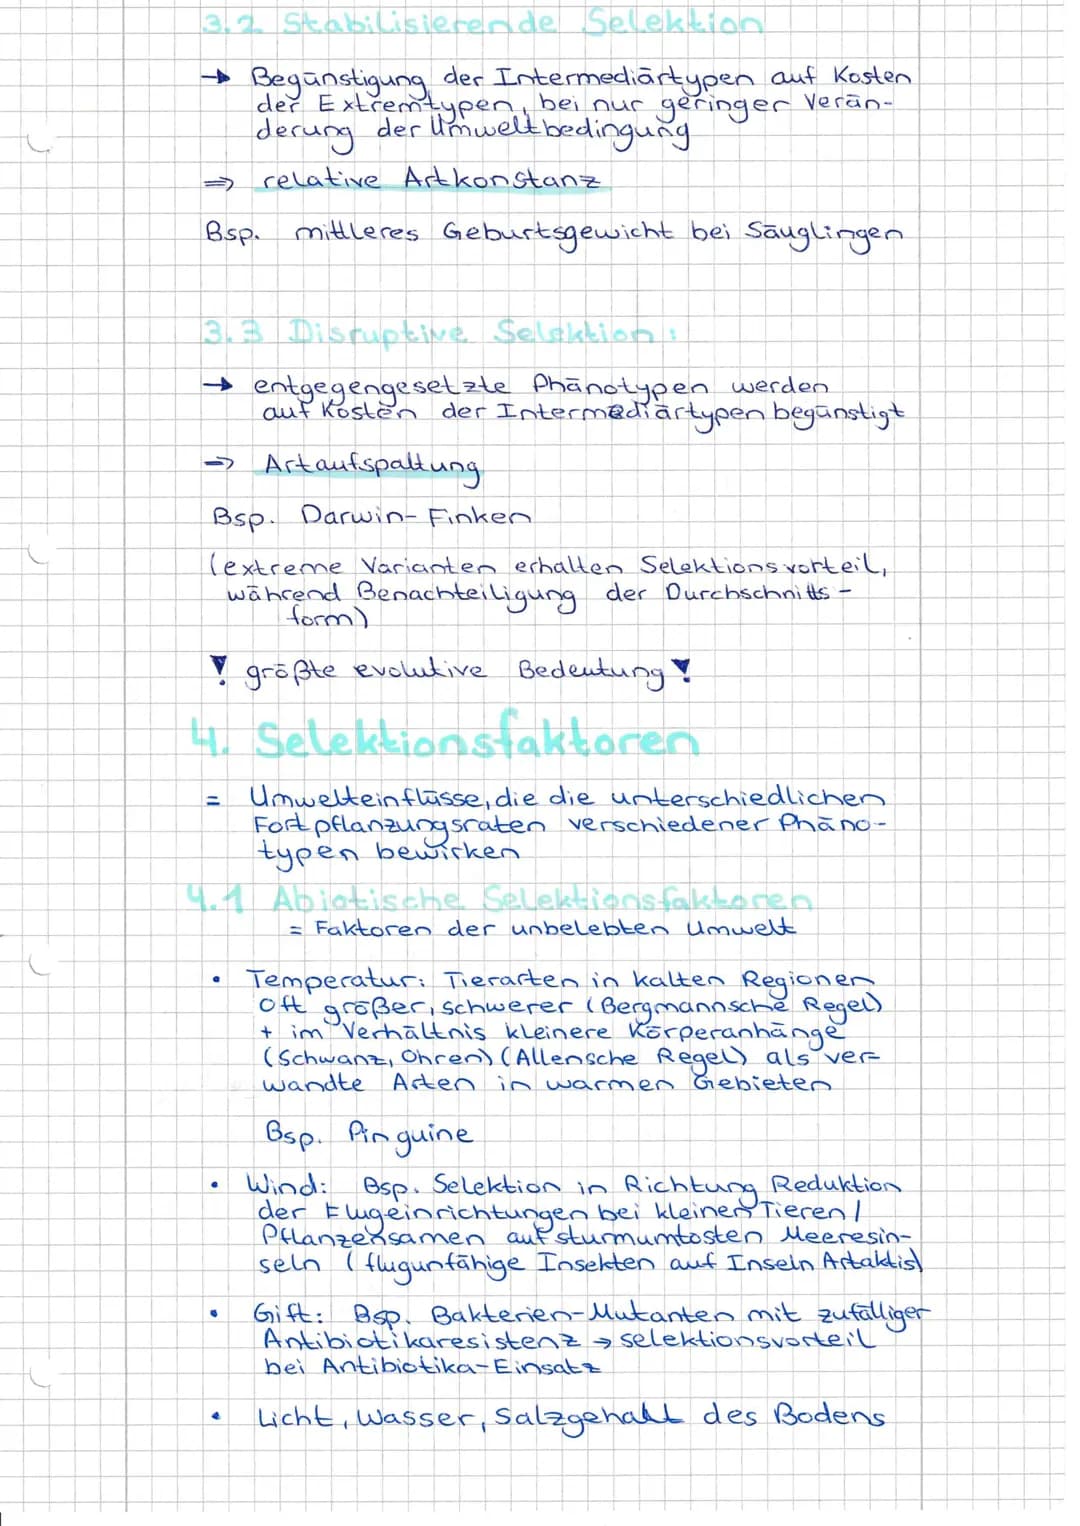 3.2 Stabilisierende Selektion
→ Begünstigung der Intermediärtypen auf Kosten
der Extremtypen, bei nur geringer Verän-
derung der Umweltbedingung
⇒ relative Artkonstanz
Bsp. mittleres Geburtsgewicht bei Säuglingen
3.3 Disruptive Selektion:
→ entgegengesetzte Phänotypen werden
auf Kosten der Intermediärtypen begünstigt
⇒ Artaufspaltung
Bsp. Darwin-Finken
(extreme Varianten erhalten Selektionsvorteil,
während Benachteiligung der Durchschnitts-
form)
! größte evolutive Bedeutung !
4. Selektionsfaktoren
= Umwelteinflüsse, die die unterschiedlichen
Fortpflanzungsraten verschiedener Phäno-
typen bewirken
4.1 Abiotische Selektionsfaktoren
= Faktoren der unbelebten Umwelt
• Temperatur: Tierarten in kalten Regionen
oft größer, schwerer (Bergmannsche Regel)
+ im Verhältnis kleinere Körperanhänge
(Schwanz, Ohren) (Allensche Regel) als ver-
wandte Arten in warmen Gebieten
Bsp. Pinguine
• Wind: Bsp. Selektion in Richtung Reduktion
der Flugeinrichtungen bei kleinen Tieren /
Pflanzensamen auf sturmumtosten Meeresin-
seln (flugunfähige Insekten auf Inseln Artaktis)
• Gift: Bsp. Bakterien-Mutanten mit zufälliger
Antibiotikaresistenz → selektionsvorteil
bei Antibiotika-Einsatz
• Licht, Wasser, Salzgehalt des Bodens